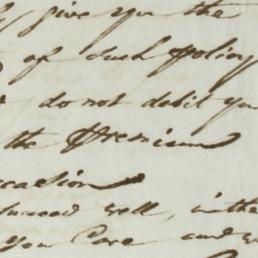 give you the
of such policy
do not debit you
the Premium
occasion
succeed well, in the
your Care and